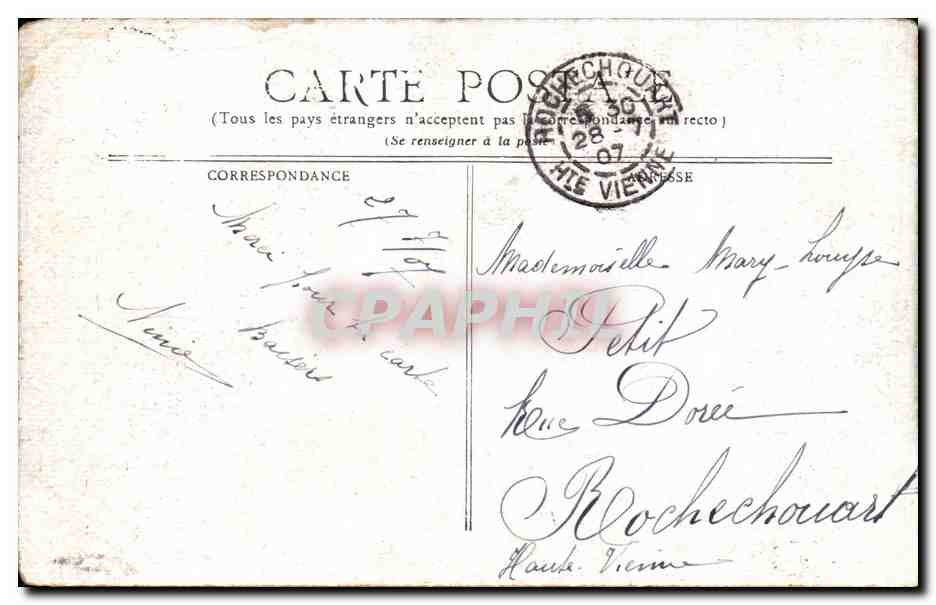 CARTE POSTALE
(Tous les pays étrangers n'acceptent pas la correspondance au recto)
(Se renseigner à la poste)
ROCHECHOUART
30
28 - 7
07
HTE VIENNE
CORRESPONDANCE
27/7/07
Merci pour ta carte
Baisers
Ninie
ADRESSE
Mademoiselle Mary-Louyse
Petit
Rue Dorée
Rochechouart
Haute-Vienne
CPAPHIL